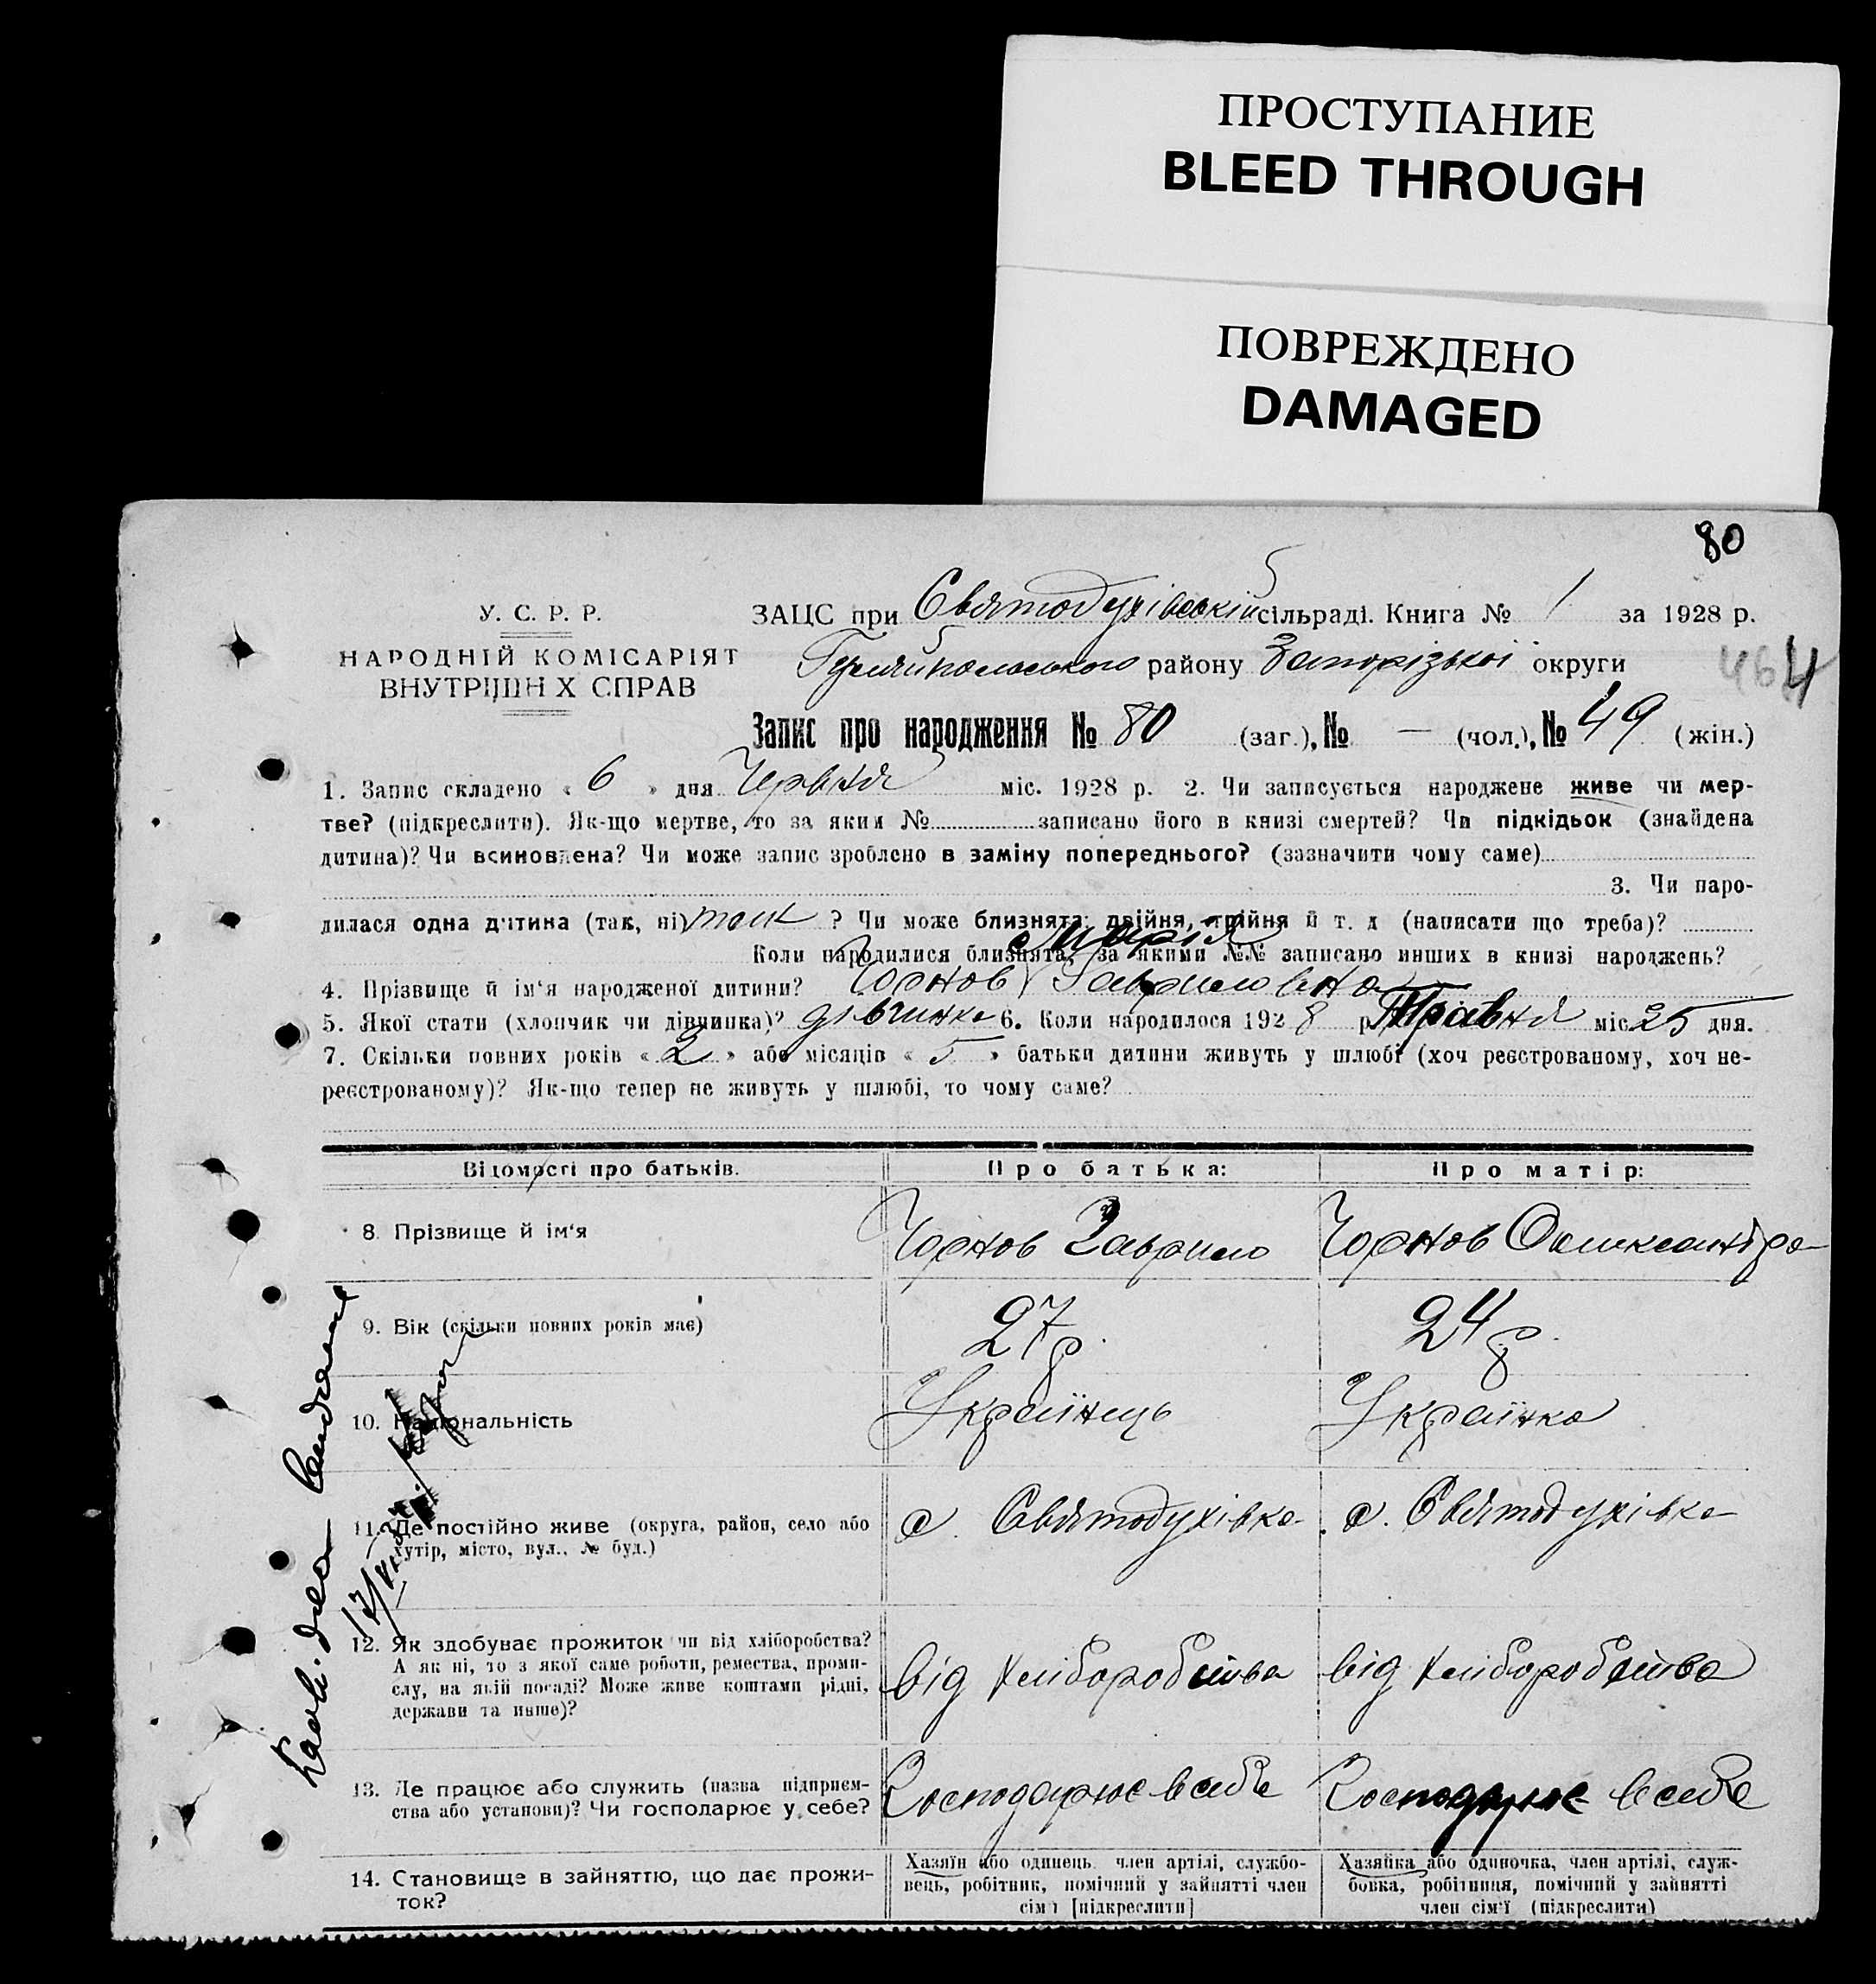 ПРОСТУПАНИЕ
BLEED THROUGH
ПОВРЕЖДЕНО
DAMAGED
80
У. С. Р. Р.
НАРОДНІЙ КОМІСАРІЯТ
ВНУТРІШН Х СПРАВ
ЗАЦС при Святодухівській сільраді. Книга № 1 за 1928 р.
Гуляйпольського району Запорізької округи
464
Запис про народження № 80 (заг.), № — (чол.), № 49 (жін.)
1. Запис складено « 6 » дня Червня міс. 1928 р. 2. Чи записується народжене живе чи мер-
тве? (підкреслити). Як-що мертве, то за яким № записано його в книзі смертей? Чи підкідьок (знайдена
дитина)? Чи всиновлена? Чи може запис зроблено в заміну попереднього? (зазначити чому саме)
3. Чи наро-
дилася одна дитина (так, ні) так ? Чи може близнята: двійня, трійня й т. д (написати що треба)?
Коли народилися близнята, за якими №№ записано инших в книзі народжень?
Марія
4. Прізвище й ім'я народженої дитини? Чорнов Гавриловна
5. Якої стати (хлопчик чи дівчинка)? дівчинка 6. Коли народилося 1928 р. Травня міс. 25 дня.
7. Скільки повних років « 2 » або місяців « 5 » батьки дитини живуть у шлюбі (хоч реєстрованому, хоч не-
реєстрованому)? Як-що тепер не живуть у шлюбі, то чому саме?
Відомості про батьків. Про батька: Про матір:
8. Прізвище й ім'я Чорнов Гаврило Чорнов Олександра
9. Вік (скільки повних років має) 27 р. 24 р.
10. Національність Українець Українка
11. Де постійно живе (округа, район, село або
хутір, місто, вул., № буд.) с. Святодухівка с. Святодухівка
12. Як здобуває прожиток чи від хліборобства?
А як ні, то з якої саме роботи, ремества, проми-
слу, на якій посаді? Може живе коштами рідні,
держави та инше)? від хліборобства від хліборобства
13. Де працює або служить (назва підприєм-
ства або установи)? Чи господарює у себе? Господарює в себе Господарює в себе
14. Становище в зайняттю, що дає прожи-
ток?
Хазяїн або одинець, член артілі, службо-
вець, робітник, помічний у зайнятті член
сім'ї [підкреслити]
Хазяйка або одиночка, член артілі, служ-
бовка, робітниця, помічний у зайнятті
член сім'ї (підкреслити)